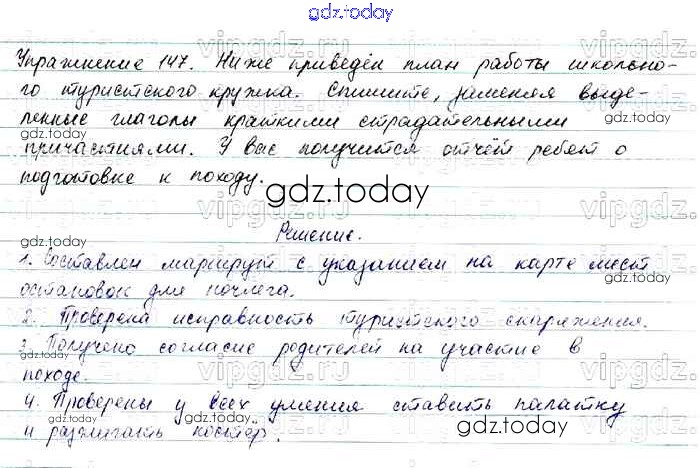 gdz.today
Упражнение 147. Ниже приведён план работы школьно-
го туристского кружка. Спишите, заменяя выде-
ленные глаголы краткими страдательными
gdz.today
причастиями. У вас получится отчёт ребят о
gdz.today
подготовке к походу.
gdz.today
Решение.
gdz.today
1. Составлен маршрут с указанием на карте мест
остановок для ночлега.
2. Проверена исправность туристского снаряжения.
3. Получено согласие родителей на участие в
походе.
gdz.today
4. Проверены у всех умения ставить палатку
gdz.today
и разжигать костёр.
gdz.today
vipgdz.ru